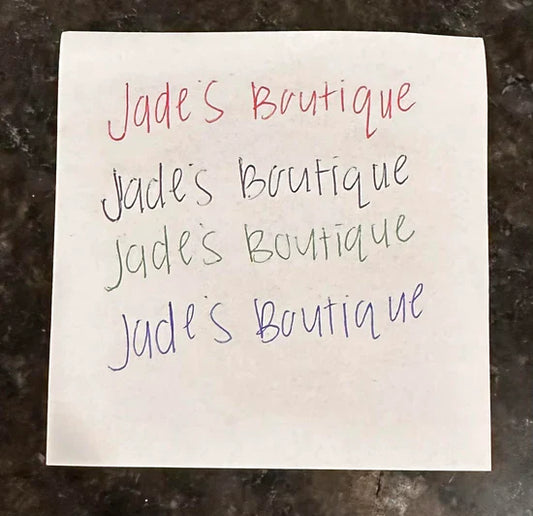 Jade's Boutique
Jade's Boutique
Jade's Boutique
Jade's Boutique